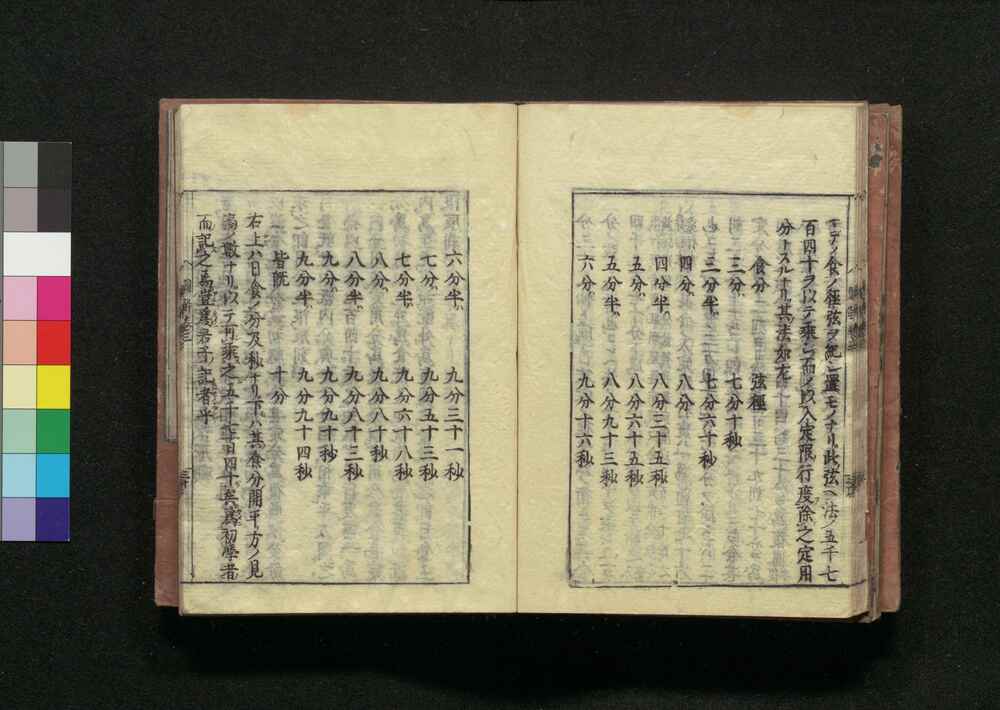 モテノ食ノ徑弦ヲ記シ置モノナリ此弦ヘ法ノ五千七
百四十ヲ以テ乘シ而ノ以入定限行度除之定用
分トスルナリ其法如左
食分 弦徑
三分 七分十秒
三分半 七分六十秒
四分 八分
四分半 八分三十五秒
五分 八分六十五秒
五分半 八分九十三秒
六分 九分十六秒
六分半 九分三十一秒
七分 九分五十三秒
七分半 九分六十八秒
八分 九分八十秒
八分半 九分八十三秒
九分 九分九十秒
九分半 九分九十四秒
皆既 十分
右上ハ日食ノ分及秒ナリ下ハ其食分開平方ノ見
商ノ數ナリ以テ可乘之五千七百四十矣為初學者
而記之為豈為君子記者乎